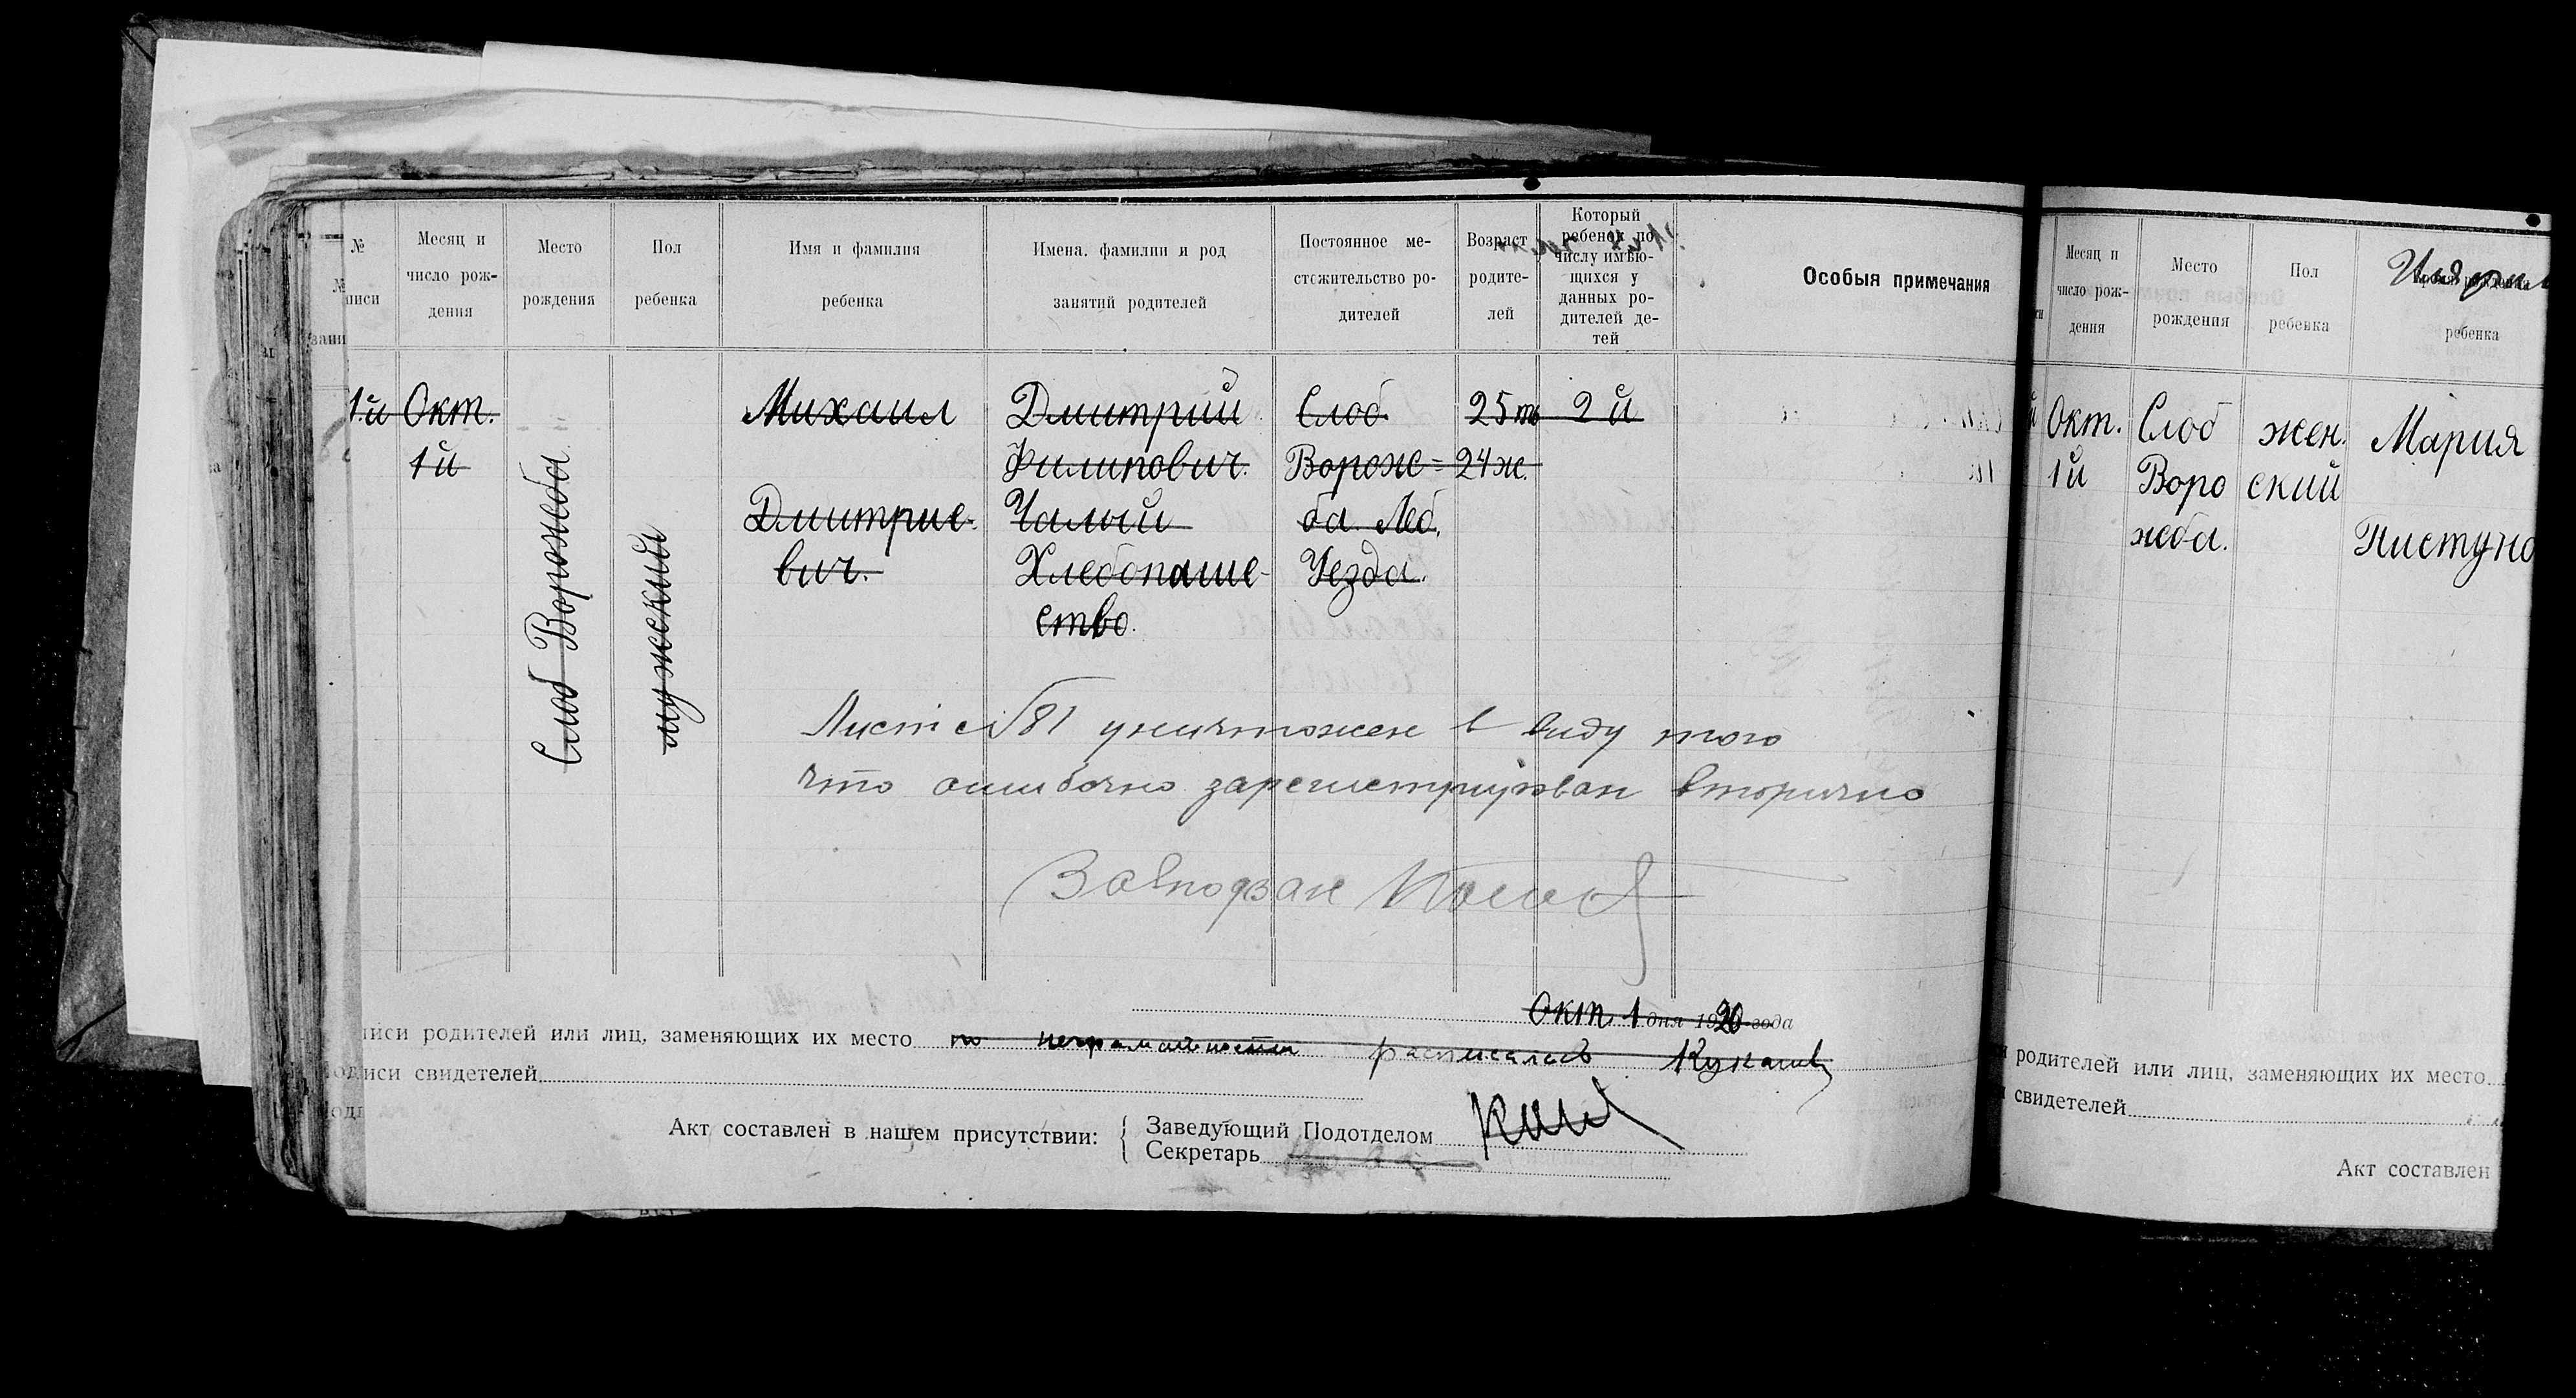 №
писи
Месяц и
число рож-
дения
Место
рождения
Пол
ребенка
Имя и фамилия
ребенка
Имена, фамилии и род
занятий родителей
Постоянное ме-
стожительство ро-
дителей
Возраст
родите-
лей
Который
ребенок по
числу имею-
щихся у
данных ро-
дителей де-
тей
Особыя примечания
1й
Окт.
1й
Слоб Ворожеба
мужеский
Михаил
Дмитрие-
вич.
Дмитрий
Филипович.
Чалый
Хлебопаше-
ство.
Слоб.
Вороже=
ба. Леб.
Уезда.
25 м
24 ж.
2й
Лист №81 уничтожен в виду того
что ошибочно зарегистрирован вторично
Завподзаг
Окт. 1 дня 1920 года
писи родителей или лиц, заменяющих их место по неграмотности расписалась
подписи свидетелей
Акт составлен в нашем присутствии:
Заведующий Подотделом
Секретарь
№
запи
Месяц и
число рож-
дения
Место
рождения
Пол
ребенка
ребенка
Окт.
1й
Слоб
Воро
жеба.
жен.
ский
Мария
Пистуно
родителей или лиц, заменяющих их место
свидетелей
Акт составлен